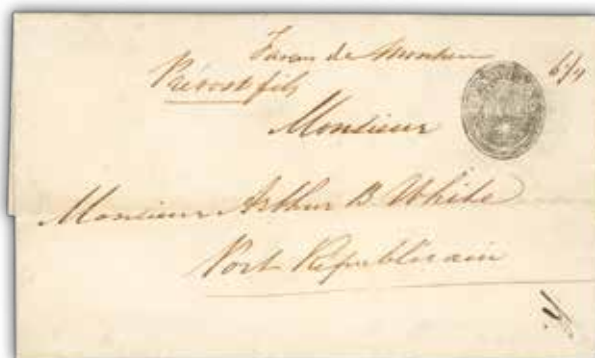 Faveur de Monsieur
Prévost fils
6/4
Monsieur
Monsieur Arthur B. White
Port Républicain